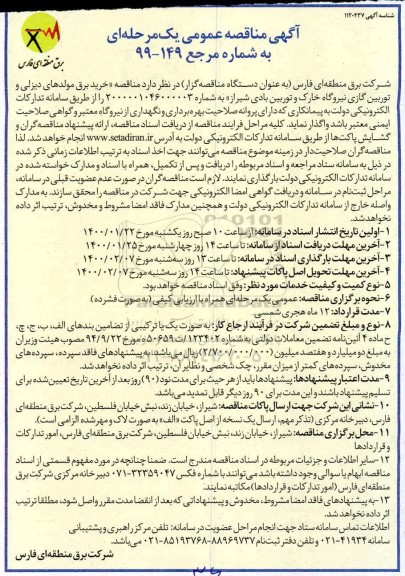 شناسه آگهی ۱۱۲۰۴۳۷
آگهی مناقصه عمومی یک مرحله‌ای
به شماره مرجع ۱۴۹-۹۹
برق منطقه‌ای فارس
شرکت برق منطقه‌ای فارس (به عنوان دستگاه مناقصه‌گزار) در نظر دارد مناقصه «خرید برق مولدهای دیزلی و
توربین گازی نیروگاه خارک و توربین بادی شیراز» به شماره ۲۰۰۰۰۰۱۰۴۶۰۰۰۰۰۳ را از طریق سامانه تدارکات
الکترونیکی دولت به پیمانکاری که دارای پروانه صلاحیت بهره‌برداری و نگهداری از نیروگاه معتبر و گواهی صلاحیت
ایمنی معتبر باشد واگذار نماید. کلیه مراحل فرایند مناقصه از دریافت اسناد مناقصه، ارائه پیشنهاد مناقصه‌گران و
گشایش پاکت‌ها از طریق سامانه تدارکات الکترونیکی دولت به آدرس www.setadiran.ir انجام خواهد شد. لذا
مناقصه‌گران صلاحیت‌دار در زمینه موضوع مناقصه می‌توانند جهت اخذ اسناد به ترتیب اطلاعات زمانی ذکر شده
در ذیل به سامانه ستاد مراجعه و اسناد مربوطه را دریافت و پس از تکمیل، همراه با اسناد و مدارک خواسته شده در
سامانه تدارکات الکترونیکی دولت بارگذاری نمایند. لازم است مناقصه‌گران در صورت عدم عضویت قبلی در سامانه،
مراحل ثبت‌نام در سامانه و دریافت گواهی امضا الکترونیکی جهت شرکت در مناقصه را محقق سازند. به مدارک
واصله خارج از سامانه تدارکات الکترونیکی دولت و همچنین مدارک فاقد امضا مشروط و مخدوش، ترتیب اثر داده
نخواهد شد.
۱- اولین تاریخ انتشار اسناد در سامانه: از ساعت ۱۰ صبح روز یکشنبه مورخ ۱۴۰۰/۰۱/۲۲
۲- آخرین مهلت دریافت اسناد از سامانه: تا ساعت ۱۴ روز چهارشنبه مورخ ۱۴۰۰/۰۱/۲۵
۳- آخرین مهلت بارگذاری اسناد در سامانه: تا ساعت ۱۳ روز سه‌شنبه مورخ ۱۴۰۰/۰۲/۰۷
۴- آخرین مهلت تحویل اصل پاکات پیشنهاد: تا ساعت ۱۴ روز سه‌شنبه مورخ ۱۴۰۰/۰۲/۰۷
۵- نوع کمیت و کیفیت خدمات مورد نظر: وفق اسناد مناقصه خواهد بود.
۶- نحوه برگزاری مناقصه: عمومی یک مرحله‌ای همراه با ارزیابی کیفی (به صورت فشرده)
۷- مدت قرارداد: ۱۲ ماه هجری شمسی.
۸- نوع و مبلغ تضمین شرکت در فرآیند ارجاع کار: به صورت یک یا ترکیبی از تضامین بندهای الف، ب، ج، چ،
ح ماده ۴ آئین‌نامه تضمین معاملات دولتی به شماره ۱۲۳۴۰۲/ت۵۰۶۵۹ه مورخ ۹۴/۹/۲۲ مصوب هیئت وزیران
به مبلغ دو میلیارد و هفتصد میلیون (۲/۷۰۰/۰۰۰/۰۰۰) ریال می‌باشد. به پیشنهادهای فاقد سپرده، سپرده‌های
مخدوش، سپرده‌های کمتر از میزان مقرر، چک شخصی و نظایر آن، ترتیب اثر داده نخواهد شد.
۹- مدت اعتبار پیشنهادها: پیشنهادها باید از هر حیث برای مدت نود (۹۰) روز بعد از آخرین تاریخ تعیین شده برای
تسلیم پیشنهاد باشند و این مدت برای ۹۰ روز دیگر قابل تمدید می‌باشد.
۱۰- نشانی این شرکت جهت ارسال پاکات مناقصه: شیراز، خیابان زند، نبش خیابان فلسطین، شرکت برق منطقه‌ای
فارس، دبیرخانه مرکزی (تذکر مهم: ارسال یک نسخه از اصل پاکت «الف» به صورت لاک و مهر شده الزامی است).
۱۱- محل برگزاری مناقصه: شیراز، خیابان زند، نبش خیابان فلسطین، شرکت برق منطقه‌ای فارس، امور تدارکات
و قراردادها
۱۲- سایر اطلاعات و جزئیات مربوطه در اسناد مناقصه مندرج است. ضمنا چنانچه در مورد مفهوم قسمتی از اسناد
مناقصه ابهام یا سوالی وجود داشته باشد می‌توانند با شماره فکس ۳۲۳۵۹۰۴۷-۰۷۱ دبیرخانه مرکزی شرکت برق
منطقه‌ای فارس (امور تدارکات و قراردادها) مکاتبه نمایند.
۱۳- به پیشنهادهای فاقد امضا مشروط، مخدوش و پیشنهاداتی که بعد از انقضا مدت مقرر واصل شود، مطلقا ترتیب
اثر داده نخواهد شد.
اطلاعات تماس سامانه ستاد جهت انجام مراحل عضویت در سامانه: تلفن مرکز راهبری و پشتیبانی
سامانه ۴۱۹۳۴-۰۲۱ و تلفن دفتر ثبت‌نام ۸۸۹۶۹۷۳۷-۸۵۱۹۳۷۶۸-۰۲۱ می‌باشد.
شرکت برق منطقه‌ای فارس